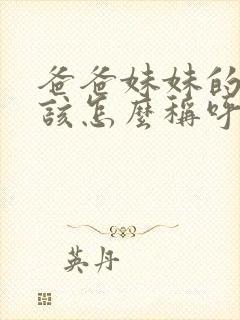 爸爸妹妹的
該怎麼稱呼
英丹